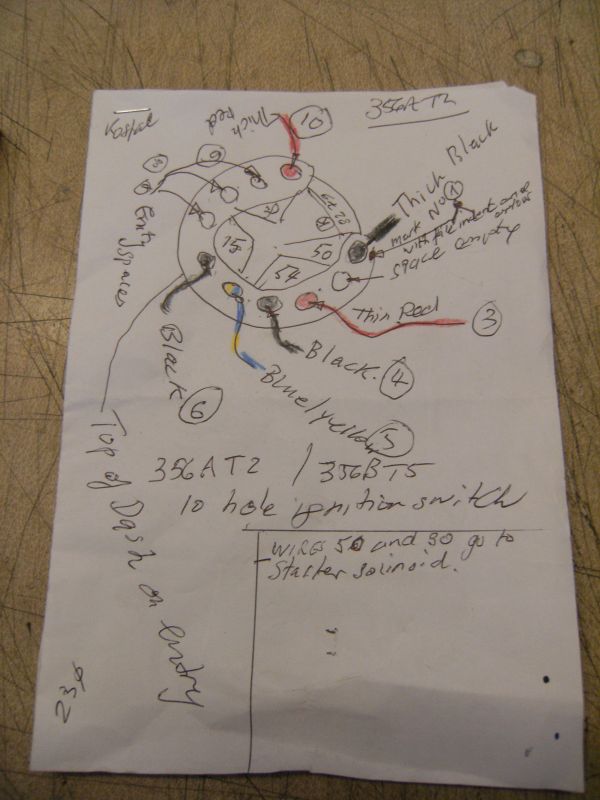 356AT2
10
Thick
Red
Thick Black
mark No 1
with
space empty
Empty
spaces
15
50
54
Thin Red
3
Black
6
Black.
4
Blue/yellow
5
Top of Dash on entry
356AT2 / 356BT5
10 hole ignition switch
WIRES 50 and 30 go to
Starter solinoid.